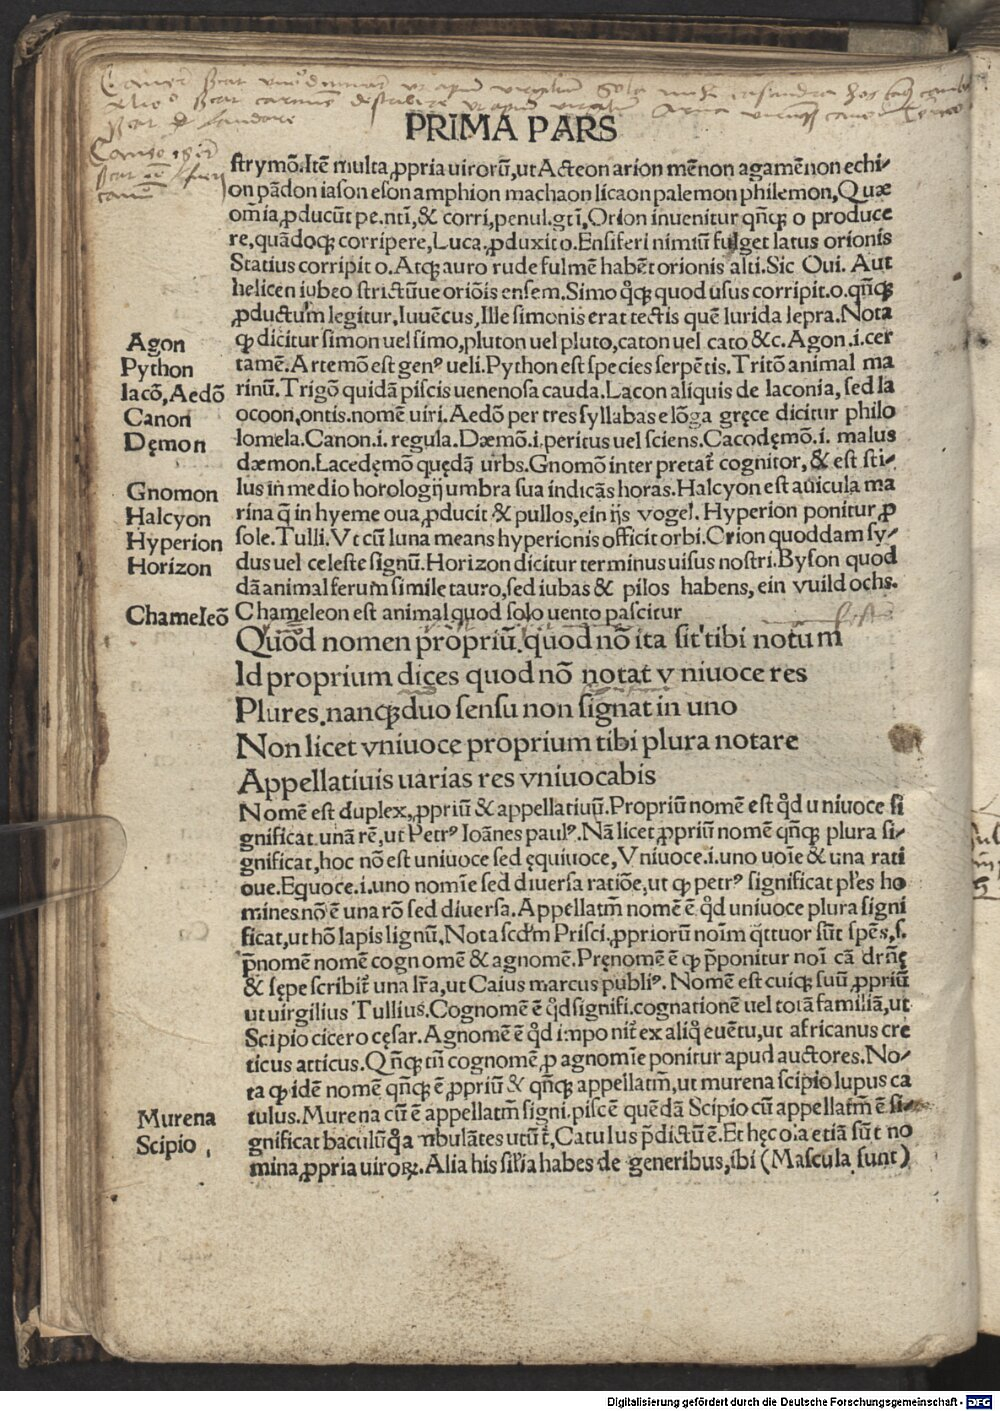 PRIMA PARS
strymō.Itē multa ꝓpria uirorū,ut Acteon arion mēnon agamēnon echi-
on pādon iason eson amphion machaon licaon palemon philemon,Quæ
om̄ia ꝓducūt pe.ntī,& corri,penul.gtī,Orion inuenitur qn̄qꝫ o produce
re,quādoqꝫ corripere,Luca.ꝓduxit o.Ensiferi nimiū fulget latus orionis
Statius corripit o.Atqꝫ auro rude fulmē habēt orionis alti.Sic Oui. Aut
helicen iubeo strictūue oriōis ensem.Simo q̊qꝫ quod usus corripit.o.qn̄qꝫ
ꝓductum legitur.Iuuēcus,Ille simonis erat tectis quē lurida lepra.Nota
Agon
ꝙ dicitur simon uel simo,pluton uel pluto,caton uel cato &c.Agon.i.cer
Python
tamē.Artemō est genꝰ ueli.Python est species serpētis.Tritō animal ma
Iacō,Aedō
rinū.Trigō quidā piscis uenenosa cauda.Lacon aliquis de laconia, sed la
Canon
ocoon,ontis.nomē uiri.Aedō per tres syllabas e lōga gręce dicitur philo
Dęmon
lomela.Canon.i. regula.Dæmō.i.peritus uel sciens.Cacodęmō.i. malus
dæmon.Lacedęmō quędā urbs.Gnomō interpretat᷑ cognitor, & est sti-
Gnomon
lus in medio horologij umbra sua indicās horas.Halcyon est auicula ma
Halcyon
rina q̄ in hyeme oua,ꝓducit & pullos,ein ijs vogel. Hyperion ponitur ꝓ
Hyperion
sole.Tulli.Vt cū luna means hyperionis officit orbi.Orion quoddam sy-
Horizon
dus uel celeste signū.Horizon dicitur terminus uisus nostri.Byson quod
dā animal ferum simile tauro,sed iubas & pilos habens, ein vuild ochs.
Chameleō
Chameleon est animal quod solo uento pascitur
Quod nomen propriū.quod nō ita sit tibi notum
Id proprium dices quod nō notat vniuoce res
Plures.nanqꝫ duo sensu non signat in uno
Non licet vniuoce proprium tibi plura notare
Appellatiuis uarias res vniuocabis
Nomē est duplex,ꝓpriū & appellatiuū.Propriū nomē est q̊d uniuoce si
gnificat unā rē,ut Petrꝰ Ioānes paulꝰ.Nā licet ꝓpriū nomē qn̄qꝫ plura si-
gnificat,hoc nō est uniuoce sed ęquiuoce,Vniuoce.i.uno uoīe & una rati
oue.Equoce.i.uno nomīe sed diuersa ratiōe,ut ꝙ petrꝰ significat pl̄es ho
mines nō ē una rō sed diuersa.Appellatm̄ nomē ē q̊d uniuoce plura signi
ficat,ut hō lapis lignū.Nota scd̄m Prisci.ꝓpriorū noīm q̄ttuor sūt spēs,s.
p̄nomē nomē cognomē & agnomē.Pręnomē ē ꝙ p̄ponitur noī cā drn̄ę
& sępe scribit᷑ una lr̄a,ut Caius marcus publiꝰ. Nomē est cuiqꝫ suū ꝓpriū
ut uirgilius Tullius.Cognomē ē q̊d signifi.cognationē uel totā familiā,ut
Scipio cicero cęsar.Agnomē ē q̊d imponit᷑ ex aliq̊ euētu,ut africanus cre
ticus atticus.Qn̄qꝫ tn̄ cognomē ꝓ agnomīe ponitur apud auctores.No-
ta ꝙ idē nomē qn̄qꝫ ē ꝓpriū & qn̄qꝫ appellatm̄,ut murena scipio lupus ca
Murena
tulus.Murena cū ē appellatm̄ signi.piscē quēdā Scipio cū appellatm̄ ē si-
Scipio
gnificat baculū q̊ ambulātes utūt᷑,Catulus p̄dictū ē.Et hęc oīa etiā sūt no
mina ꝓpria uiroꝝ.Alia his sil̄ia habes de generibus,ibi (Mascula sunt)
Digitalisierung gefördert durch die Deutsche Forschungsgemeinschaft - DFG